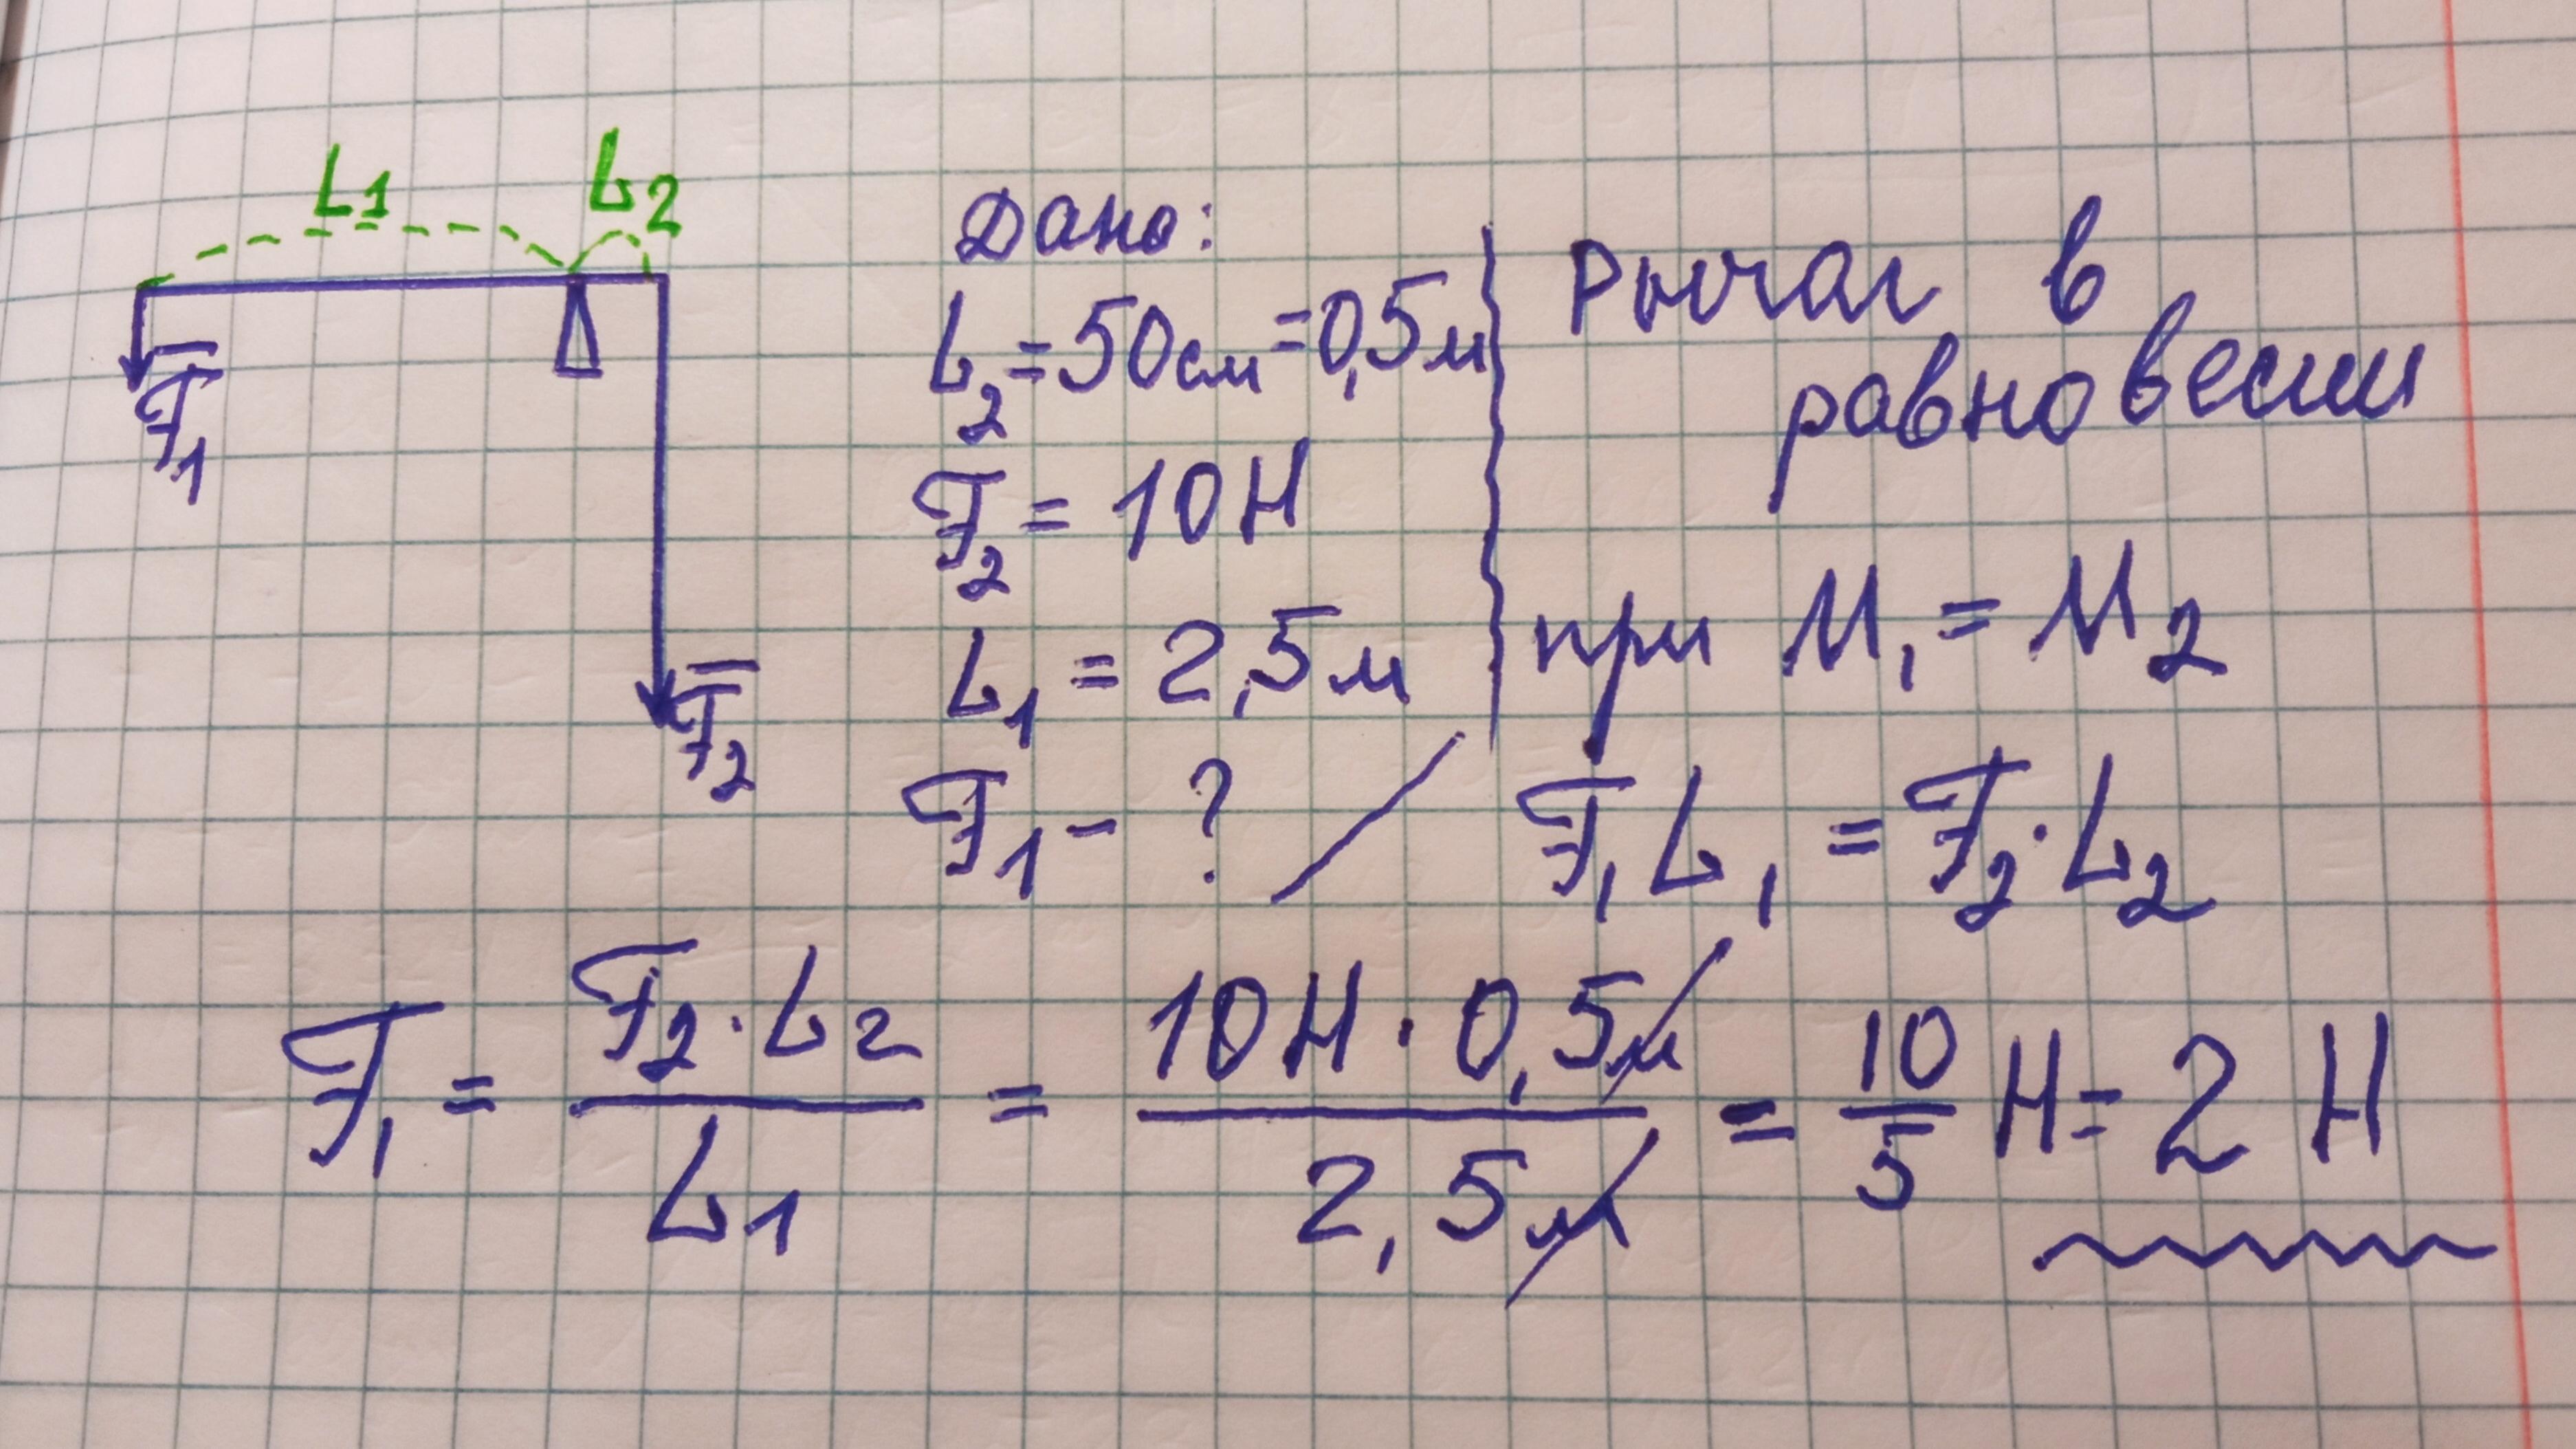 L1 L2
F1
F2
Дано:
L2 = 50см = 0,5м
F2 = 10Н
L1 = 2,5м
F1 - ?
Рычаг в
равновесии
при M1 = M2
F1 L1 = F2 · L2
F1 = F2 · L2 / L1 = 10Н · 0,5м / 2,5м = 10/5 Н = 2 Н